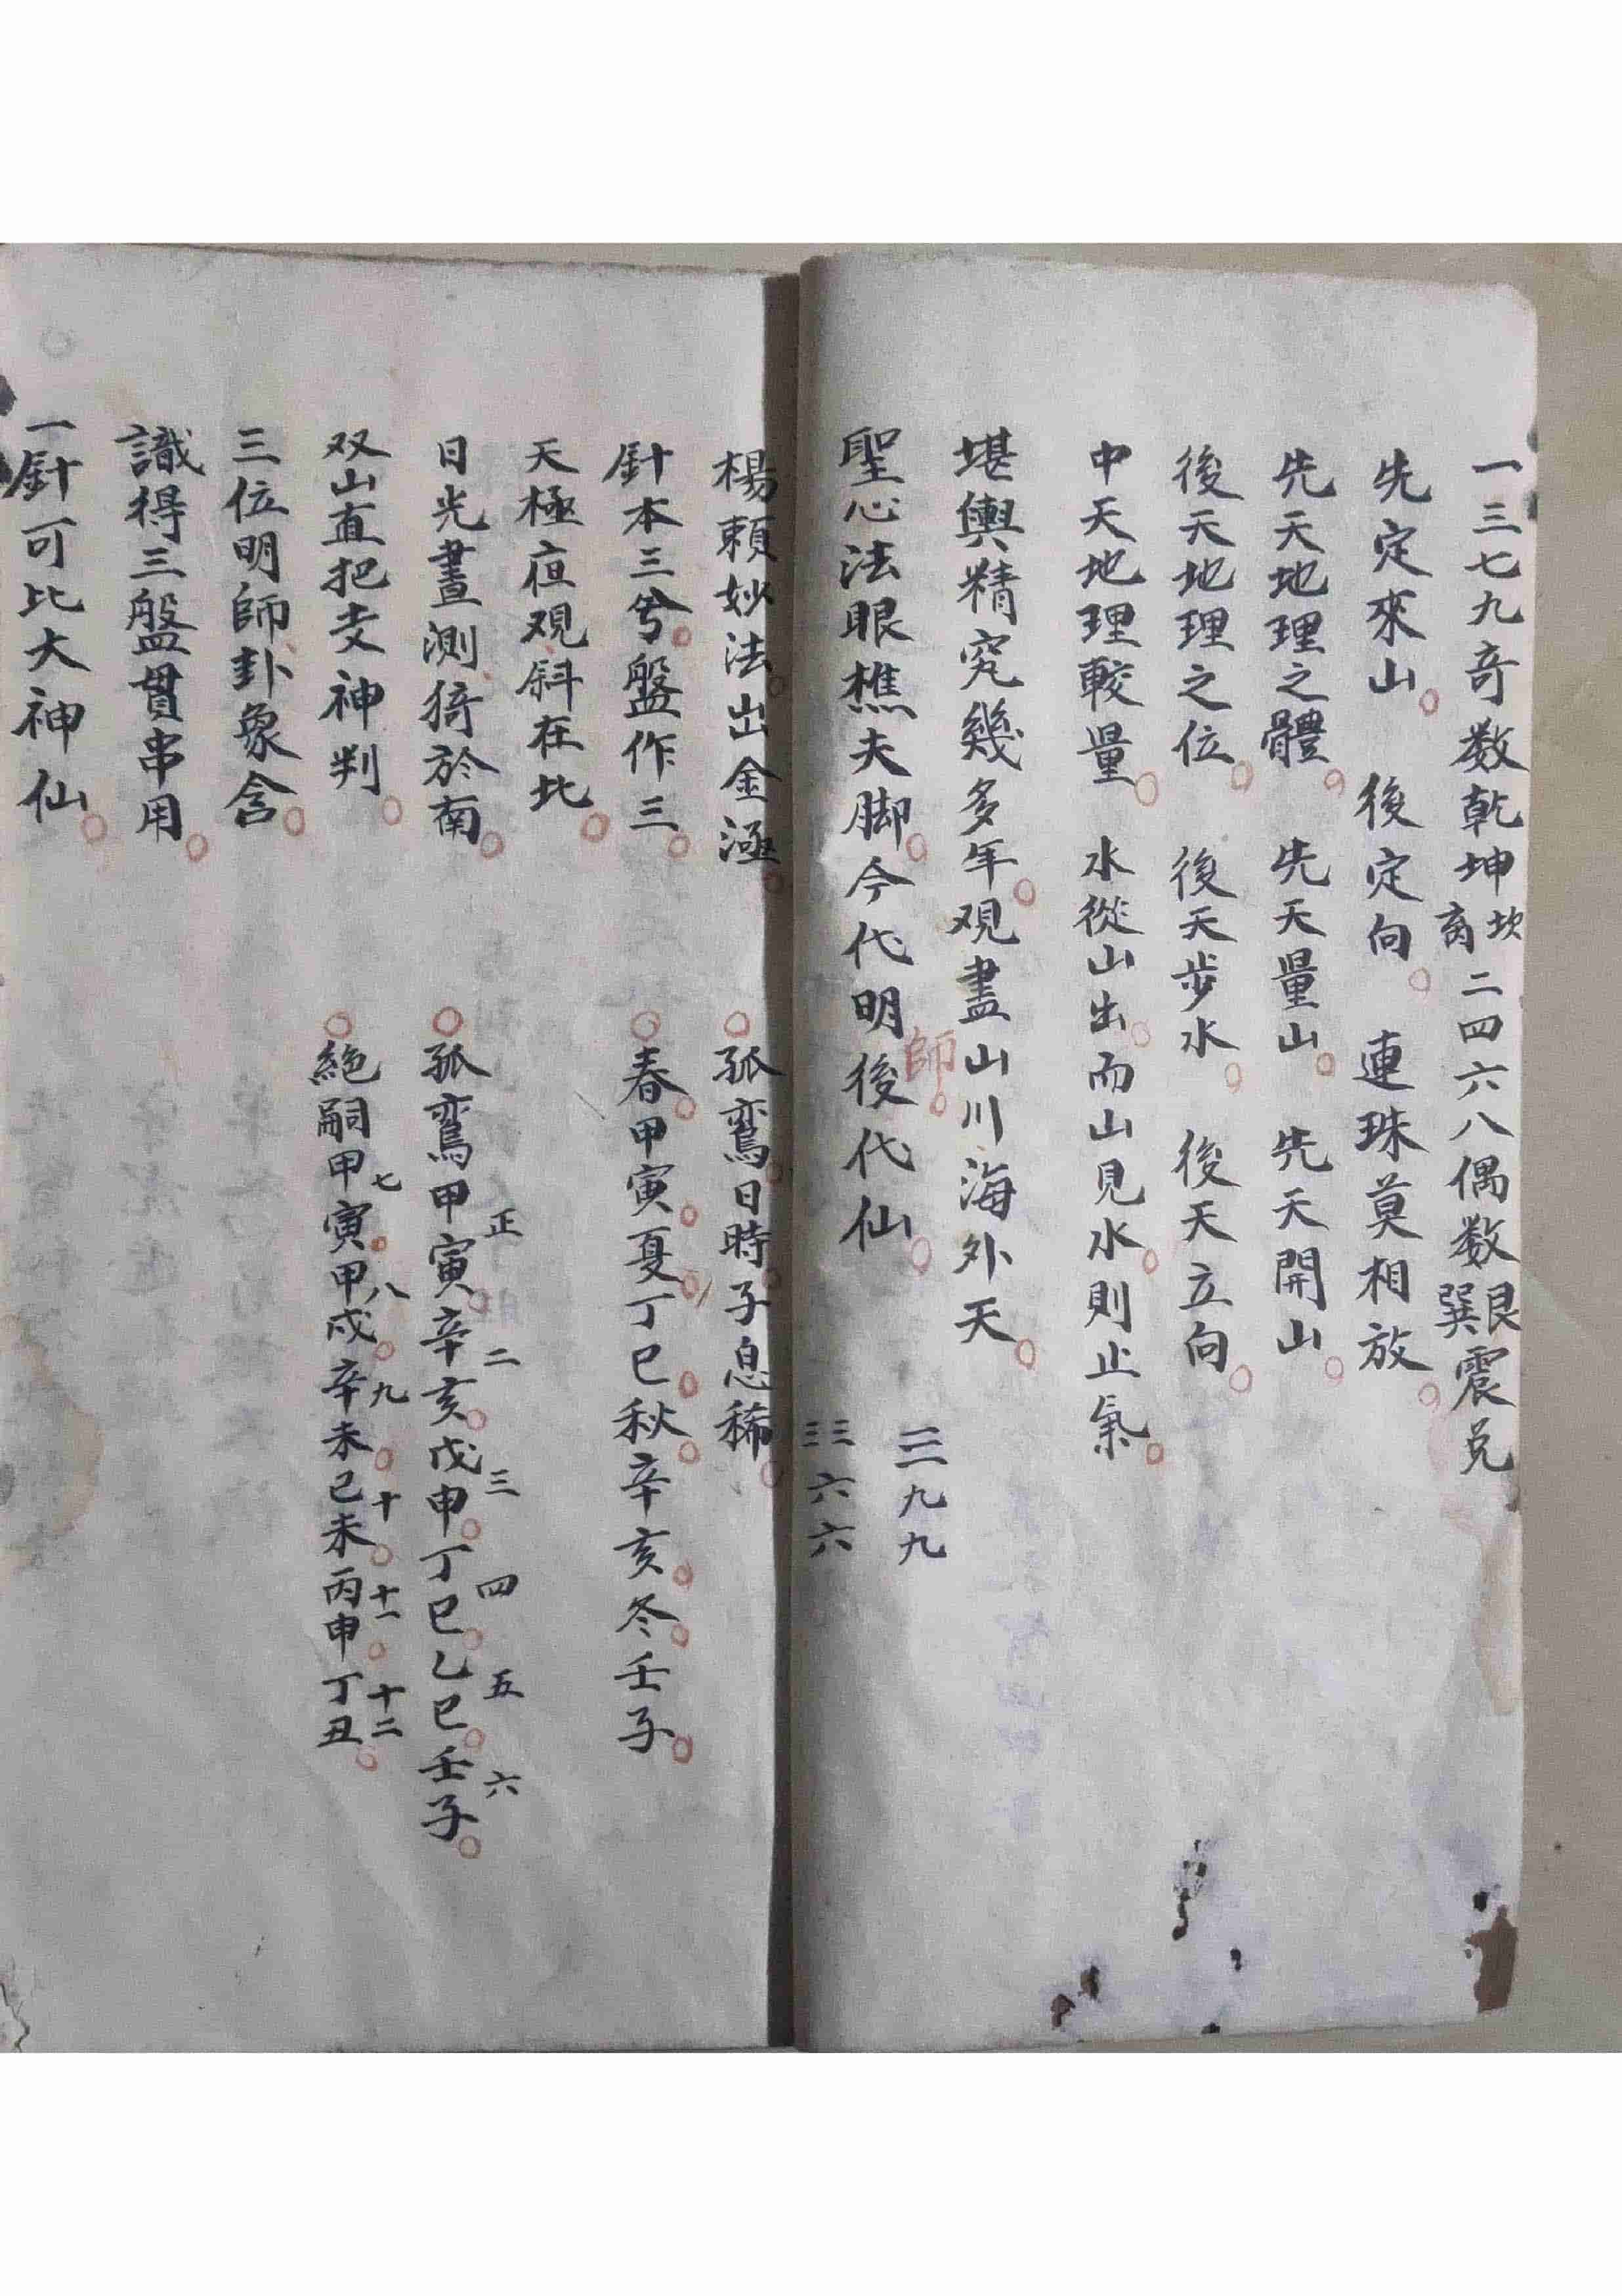 一三七九奇数乾坤坎离二四六八偶数艮巽震兑
先定來山。後定向。連珠莫相放。
先天地理之體。先天量山。先天開山。
後天地理之位。後天步水。後天立向。
中天地理較量。水從山出。而山見水。則止氣。
堪輿精究幾多年。观盡山川海外天。
聖心法眼樵夫脚。今代明師後代仙。
三九九
三六六
楊賴妙法出金涵。
針本三兮盤作三。
天極夜观斜在北。
日光晝测猗於南。
双山直把爻神判。
三位明師卦象含。
識得三盤貫串用。
一針可比大神仙。
孤鸾日時子息稀。
春甲寅夏丁巳秋辛亥冬壬子。
正 二 三 四 五 六
孤鸾甲寅辛亥戊申丁巳乙巳壬子。
七 八 九 十 十一 十二
絶嗣甲寅甲戌辛未己未丙申丁丑。